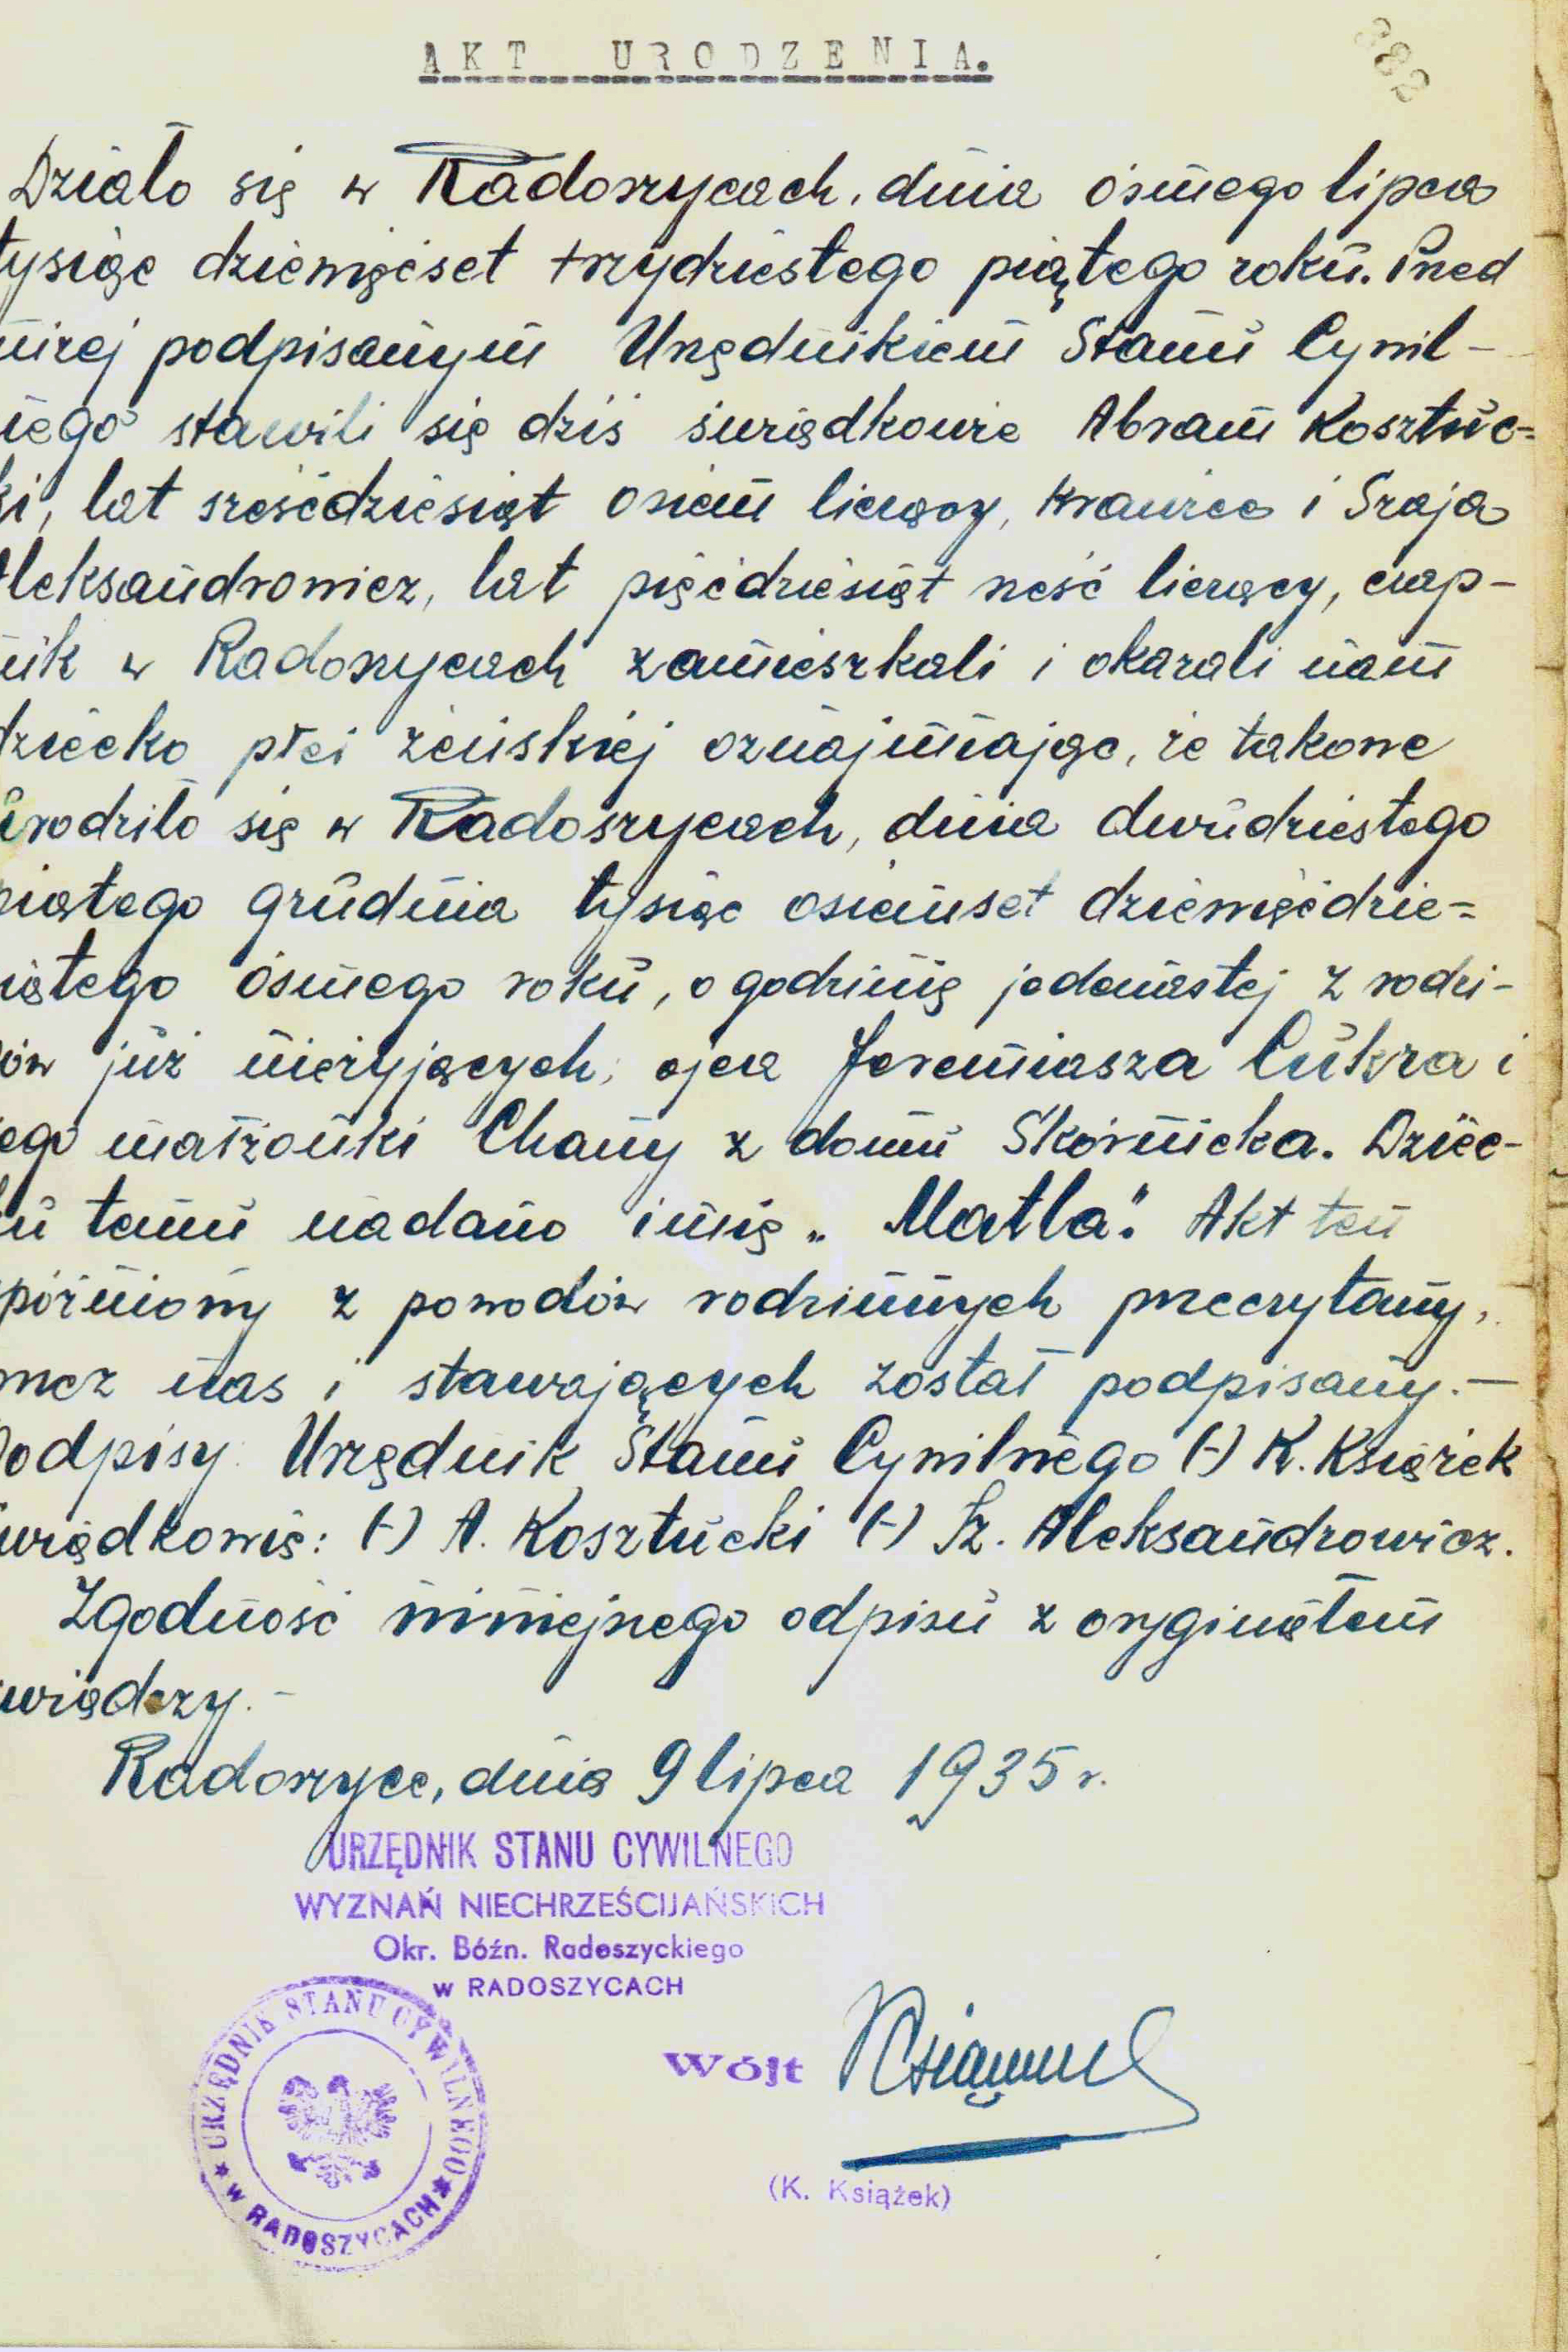 AKT URODZENIA.
382
Działo się w Radoszycach, dnia ósmego lipca
tysiąc dziewięćset trzydziestego piątego roku. Przed
niżej podpisanym Urzędnikiem Stanu Cywil-
nego stawili się dziś świadkowie Abram Kosztuc-
ki, lat sześćdziesiąt osiem liczący, krawiec i Szaja
Aleksandrowicz, lat pięćdziesiąt sześć liczący, czap-
nik w Radoszycach zamieszkali i okazali nam
dziecko płci żeńskiej oznajmiając, że takowe
urodziło się w Radoszycach, dnia dwudziestego
piątego grudnia tysiąc osiemset dziewięćdzie-
siątego ósmego roku, o godzinie jedenastej z rodzi-
ców już nieżyjących, ojca Jeremiasza Cukra i
jego małżonki Chany z domu Skórnicka. Dziec-
ku temu nadano imię „Matla". Akt ten
spóźniony z powodów rodzinnych przeczytany,
przez nas i stawających został podpisany.—
Podpisy: Urzędnik Stanu Cywilnego (-) K. Książek
Świadkowie: (-) A. Kosztucki (-) Sz. Aleksandrowicz.
Zgodność niniejszego odpisu z oryginałem
świadczy.-
Radoszyce, dnia 9 lipca 1935 r.
URZĘDNIK STANU CYWILNEGO
WYZNAŃ NIECHRZEŚCIJAŃSKICH
Okr. Bóźn. Radoszyckiego
w RADOSZYCACH
URZĘDNIK STANU CYWILNEGO
* w RADOSZYCACH *
Wójt
(K. Książek)